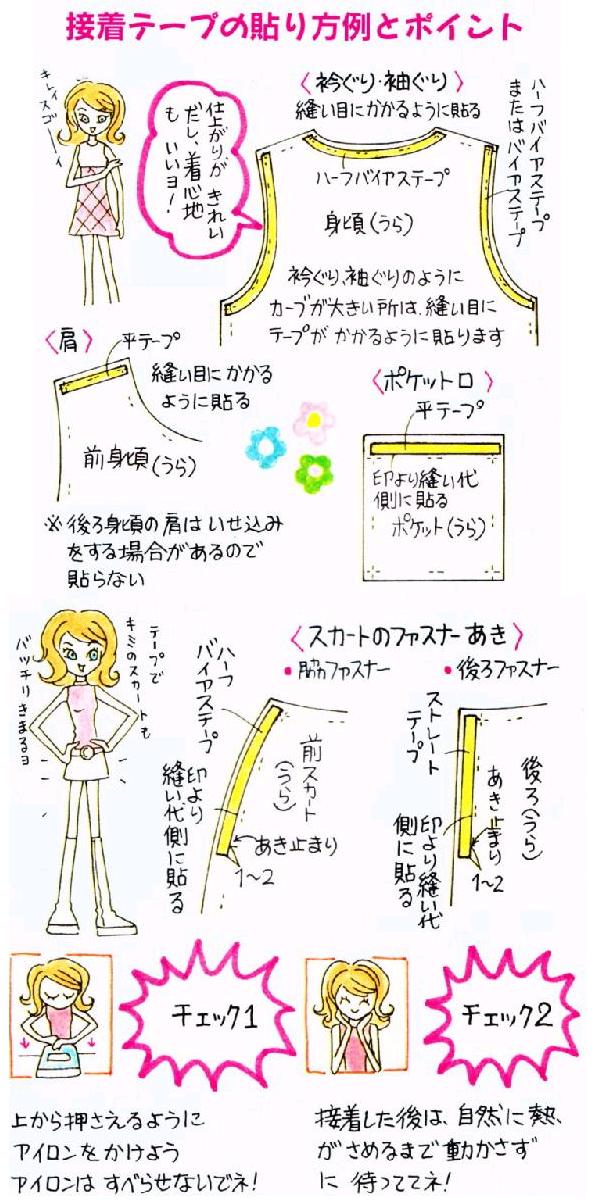 接着テープの貼り方例とポイント
キレイスゴーイ
仕上がりが きれい
だし、着心地
も いいヨ!
〈衿ぐり・袖ぐり〉
縫い目にかかるように貼る
ハーフバイアステープ
または バイアステープ
ハーフバイアステープ
身頃(うら)
衿ぐり、袖ぐりのように
カーブが大きい所は、縫い目に
テープが かかるように貼ります
〈肩〉
平テープ
縫い目にかかる
ように貼る
前身頃(うら)
※後ろ身頃の肩は いせ込み
をする場合があるので
貼らない
〈ポケット口〉
平テープ
印より縫い代
側に貼る
ポケット(うら)
テープで
キミのスカートも
バッチリきまるヨ
〈スカートのファスナーあき〉
•脇ファスナー
ハーフ
バイアステープ
前スカート
(うら)
印より
縫い代
側に貼る
あき止まり
1~2
•後ろファスナー
ストレート
テープ
後ろ(うら)
あき止まり
印より縫い代
側に貼る
1~2
チェック1
上から押さえるように
アイロンをかけよう
アイロンは すべらせないでネ!
チェック2
接着した後は、自然に熱
がさめるまで動かさず
に 待っててネ!